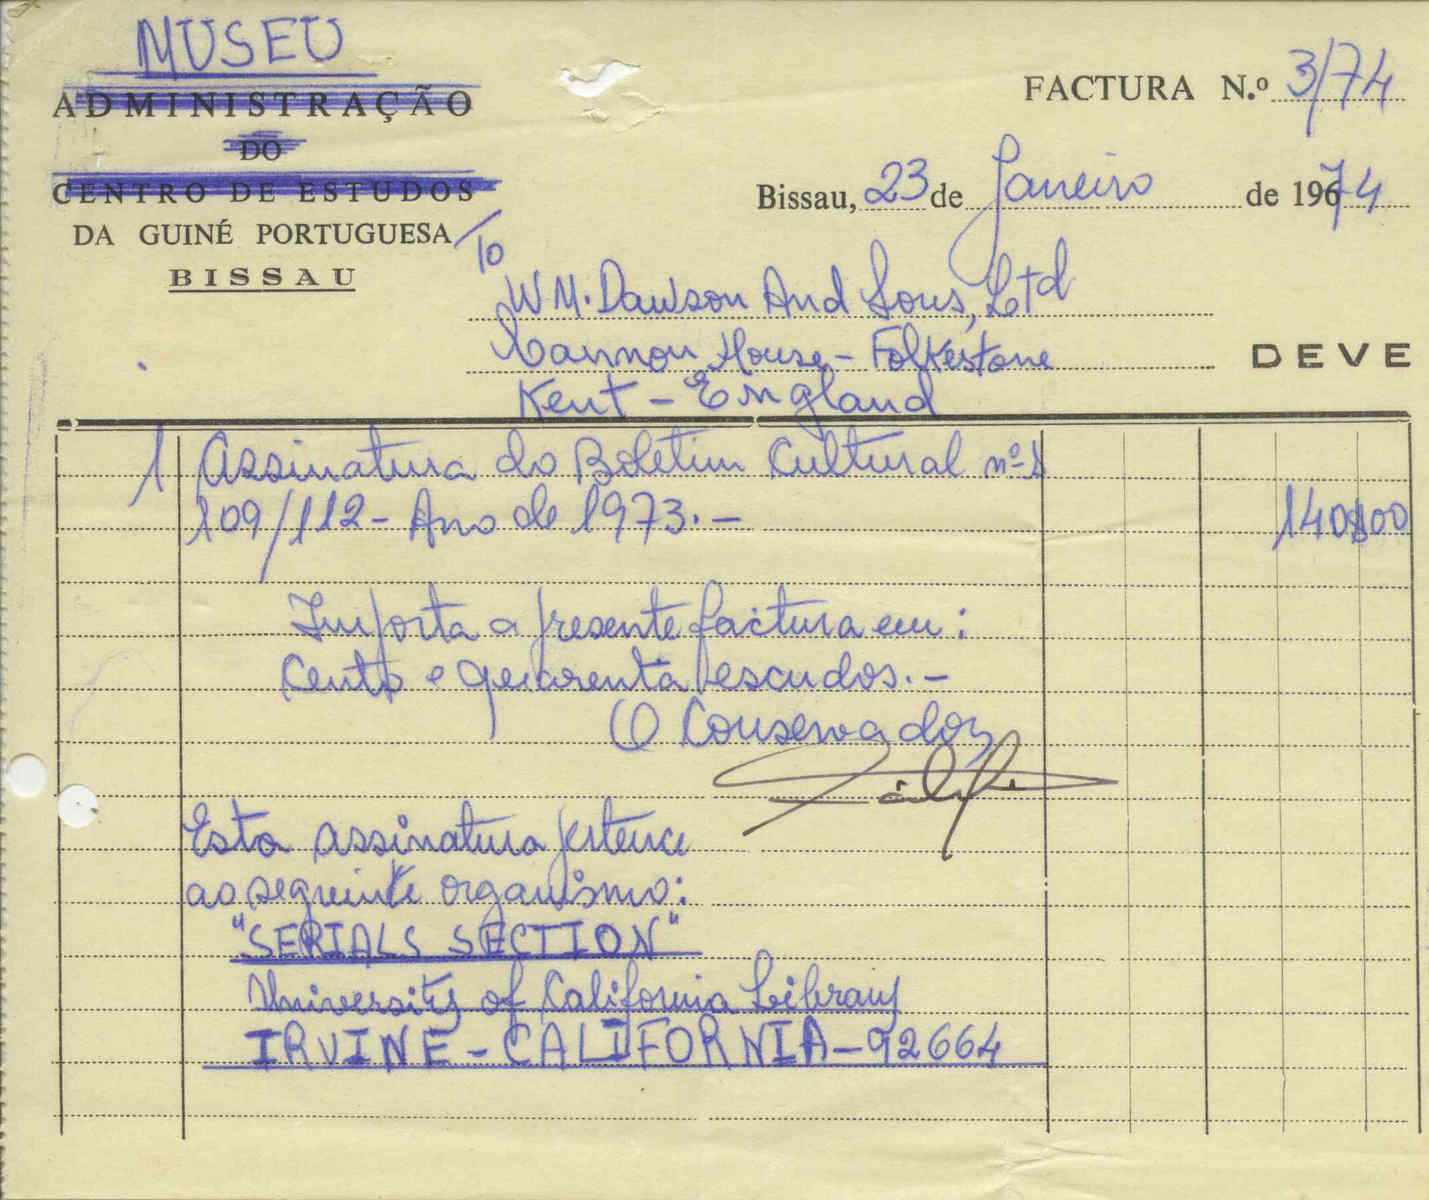 MUSEU
ADMINISTRAÇÃO
DO
CENTRO DE ESTUDOS
DA GUINÉ PORTUGUESA
BISSAU
FACTURA N.º 3/74
Bissau, 23 de Janeiro de 1974
To
WM. Dawson And Sons, Ltd
Cannon House - Folkestone
Kent - England
DEVE
1 Assinatura do Boletim Cultural nºs
109/112 - Ano de 1973. - 140$00
Importa a presente factura em:
Cento e quarenta escudos. -
O Conservador
Esta assinatura pertence
ao seguinte organismo:
"SERIALS SECTION"
University of California Library
IRVINE - CALIFORNIA - 92664